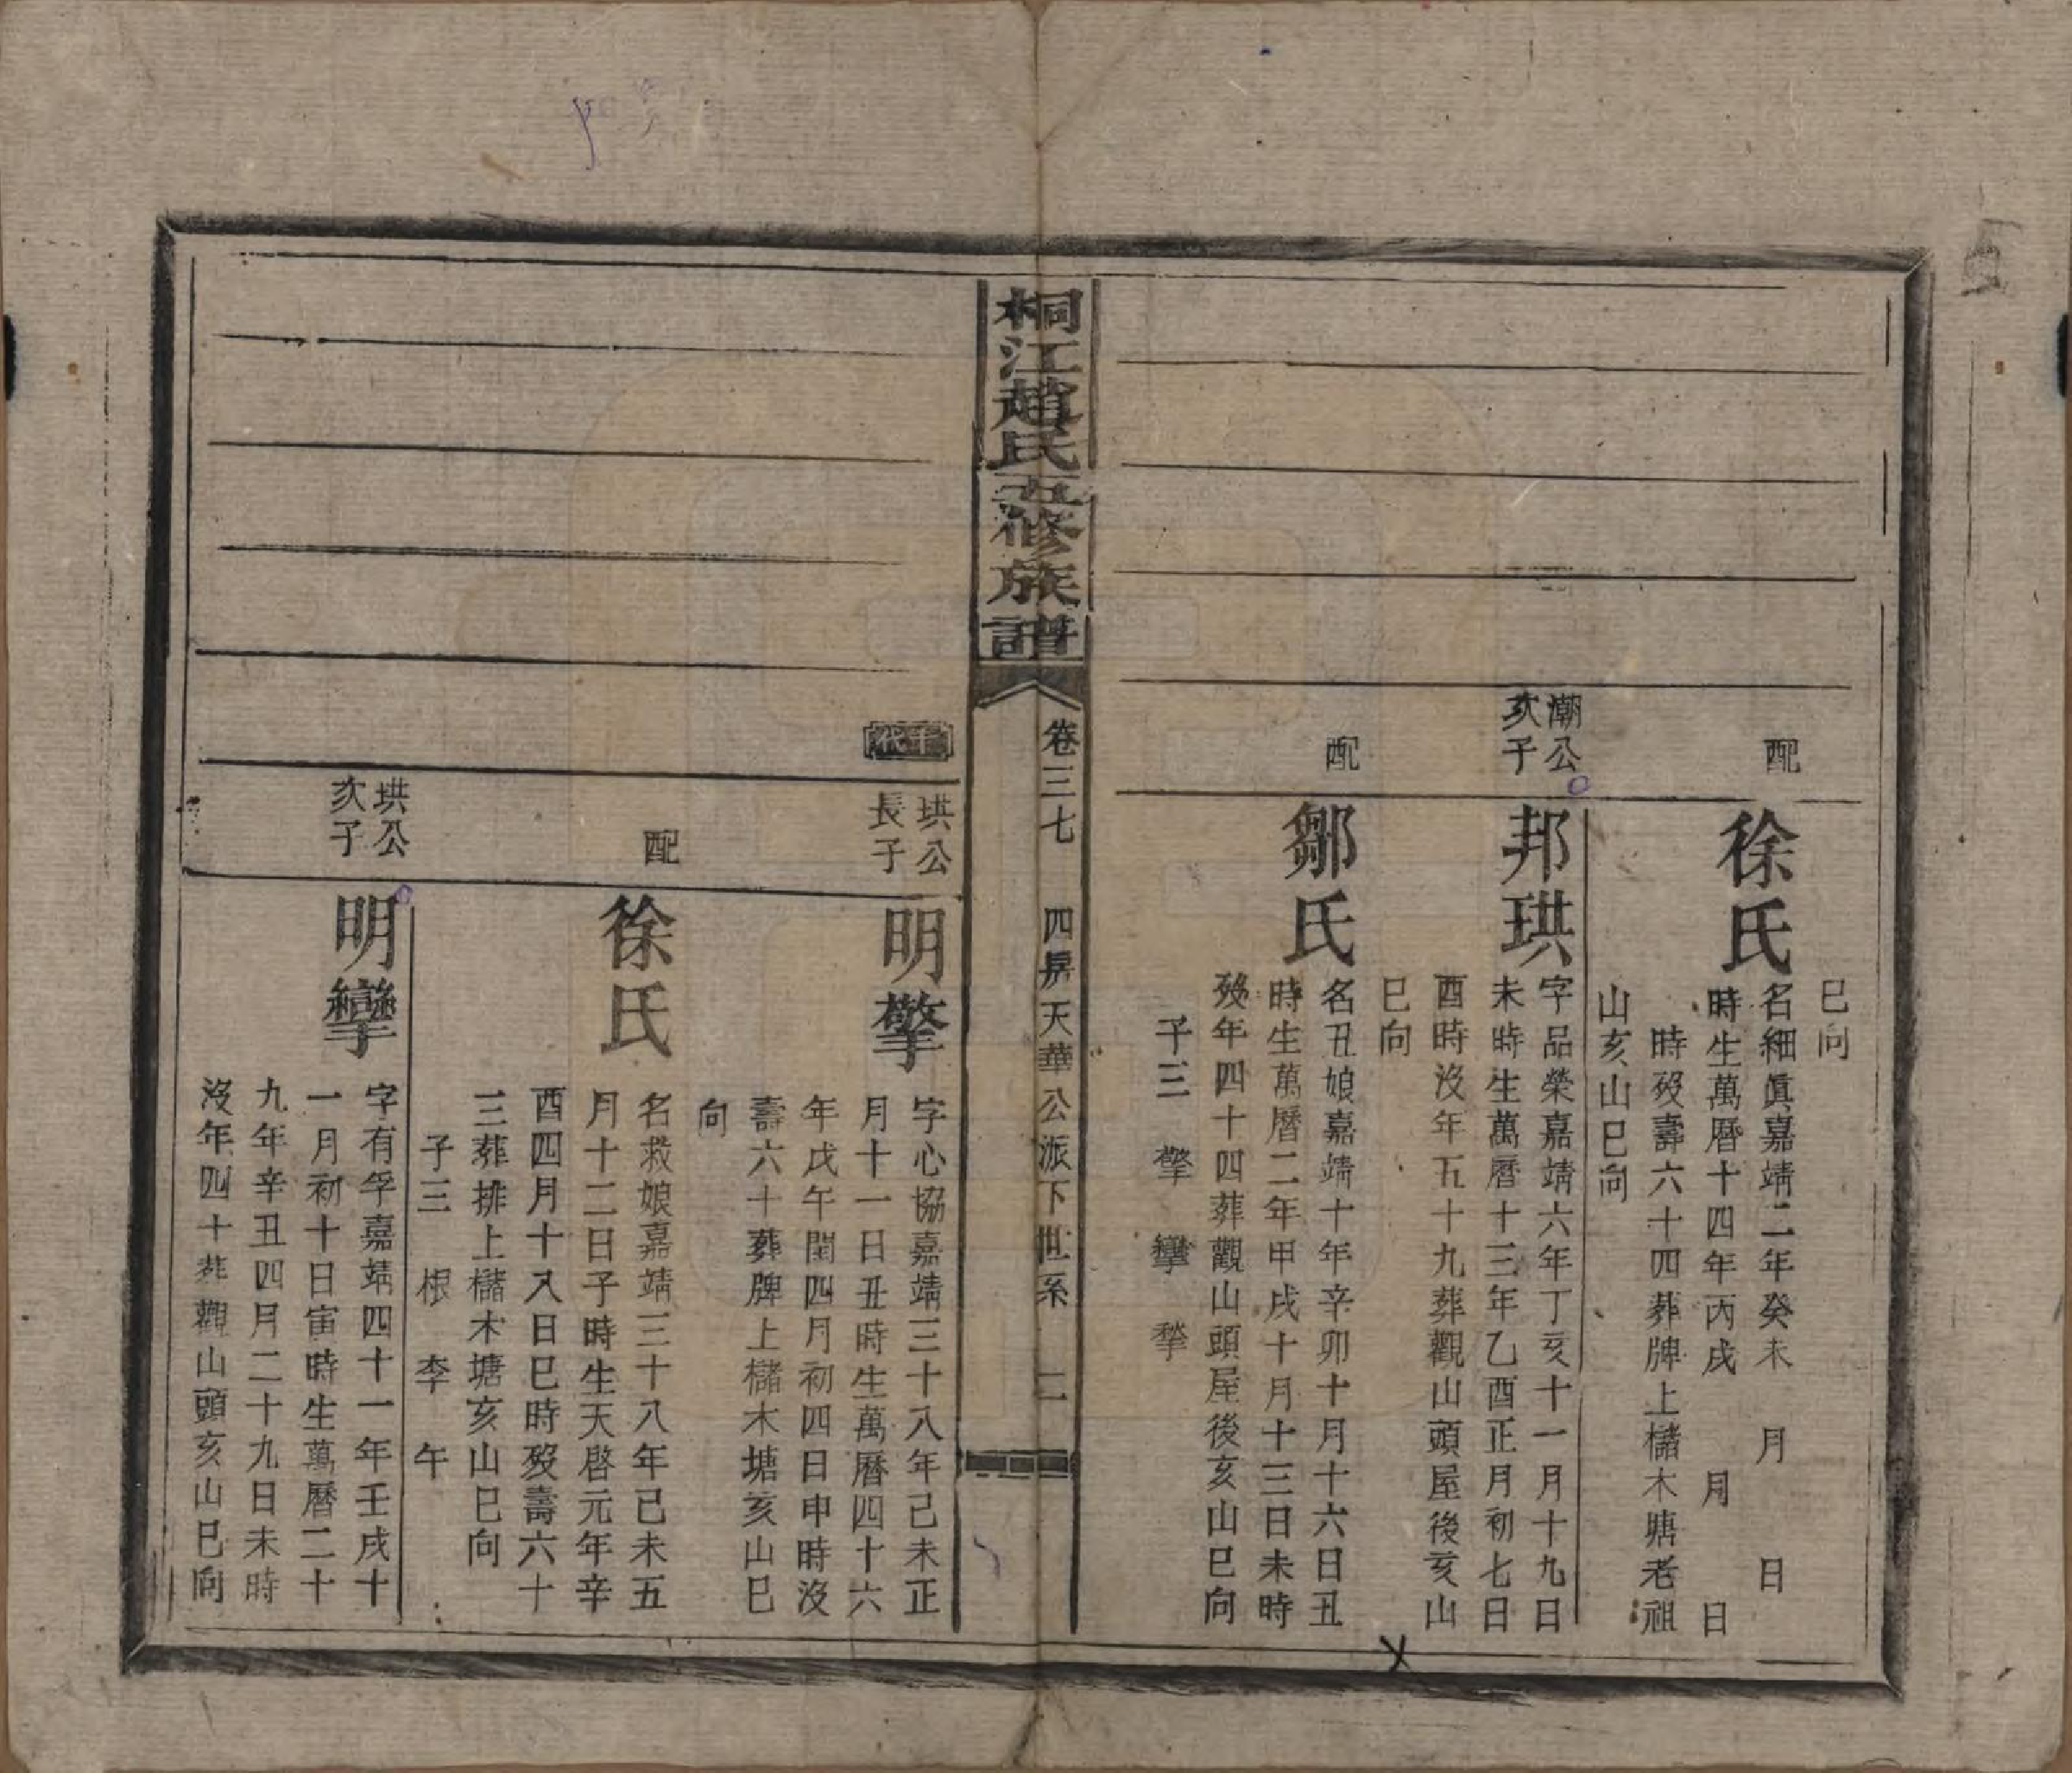 巳向
配
徐氏
名細眞嘉靖二年癸未　月　日
時生萬曆十四年丙戌　月　日
時歿壽六十四葬牌上櫧木塘老祖
山亥山巳向
潮公
次子
邦珙
字品榮嘉靖六年丁亥十一月十九日
未時生萬曆十三年乙酉正月初七日
酉時沒年五十九葬觀山頭屋後亥山
巳向
配
鄒氏
名丑娘嘉靖十年辛卯十月十六日丑
時生萬曆二年甲戌十月十三日未時
歿年四十四葬觀山頭屋後亥山巳向
子三　擎　攣　犂
桐江趙氏五修族譜
卷三七　四房天華公派下世系　二
十代
珙公
長子
明擎
字心協嘉靖三十八年己未正
月十一日丑時生萬曆四十六
年戊午閏四月初四日申時沒
壽六十葬牌上櫧木塘亥山巳
向
配
徐氏
名救娘嘉靖三十八年己未五
月十二日子時生天啓元年辛
酉四月十八日巳時歿壽六十
三葬排上櫧木塘亥山巳向
子三　根　李　午
珙公
次子
明攣
字有孚嘉靖四十一年壬戌十
一月初十日寅時生萬曆二十
九年辛丑四月二十九日未時
沒年四十葬觀山頭亥山巳向